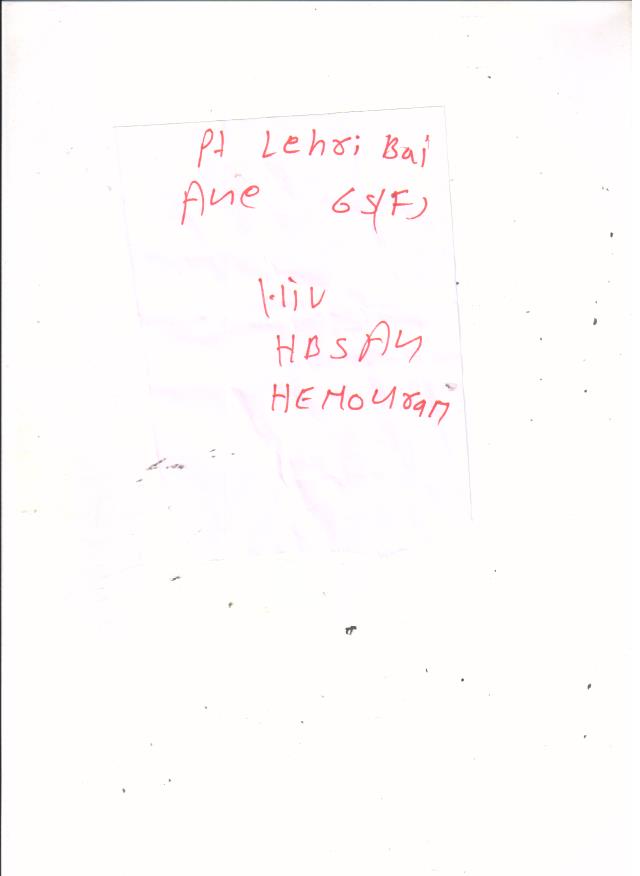 Pt Lehri Bai
Age 65(F)
HIV
HBSAg
HEMOgram